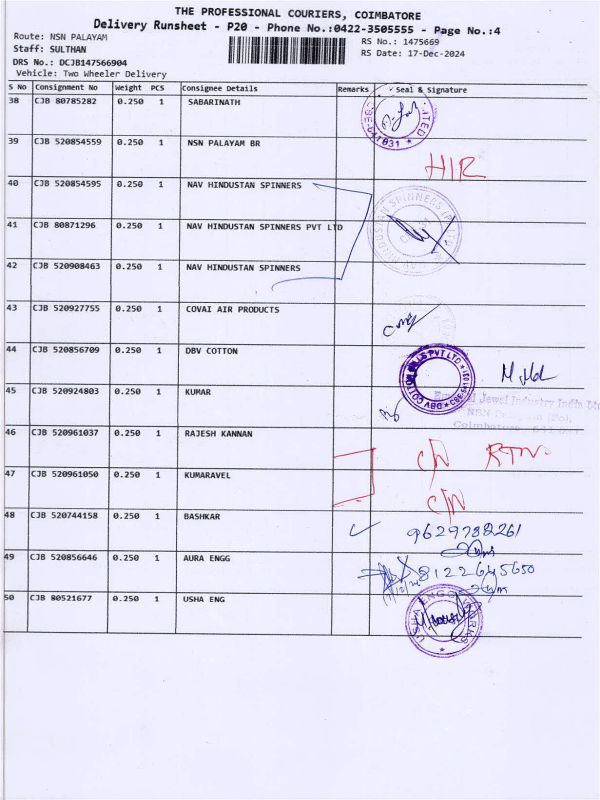 THE PROFESSIONAL COURIERS, COIMBATORE
Delivery Runsheet - P20 - Phone No.:0422-3505555 - Page No.:4
Route: NSN PALAYAM
RS No.: 1475669
Staff: SULTHAN
RS Date: 17-Dec-2024
DRS No.: DCJB147566904
Vehicle: Two Wheeler Delivery
S No Consignment No Weight PCS Consignee Details Remarks Seal & Signature
38 CJB 80785282 0.250 1 SABARINATH
39 CJB 520854559 0.250 1 NSN PALAYAM BR
H/R
40 CJB 520854595 0.250 1 NAV HINDUSTAN SPINNERS
41 CJB 80871296 0.250 1 NAV HINDUSTAN SPINNERS PVT LTD
42 CJB 520908463 0.250 1 NAV HINDUSTAN SPINNERS
43 CJB 520927755 0.250 1 COVAI AIR PRODUCTS
44 CJB 520856709 0.250 1 DBV COTTON
DBV COTTON MILLS PVT LTD
45 CJB 520924803 0.250 1 KUMAR
Jewel Industry India
NSN
Coimbatore
46 CJB 520961037 0.250 1 RAJESH KANNAN
C/N RTN.
47 CJB 520961050 0.250 1 KUMARAVEL
C/N
48 CJB 520744158 0.250 1 BASHKAR
9629788261
49 CJB 520856646 0.250 1 AURA ENGG
8122645650
50 CJB 80521677 0.250 1 USHA ENG
USHA ENGG WORKS